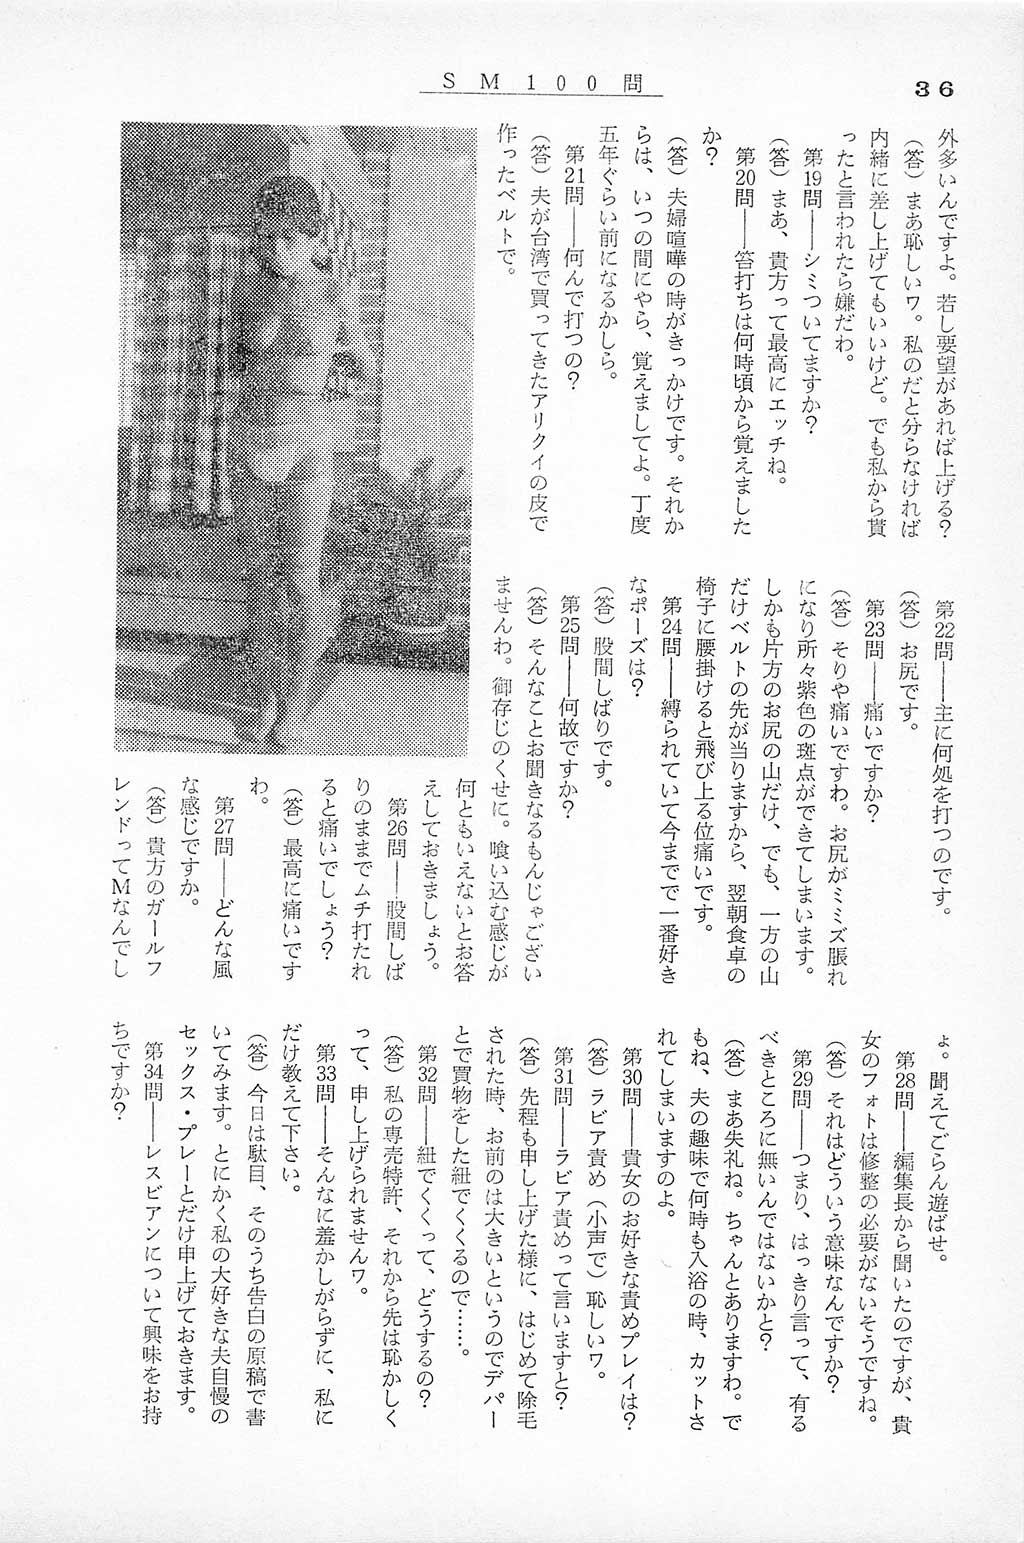 SM100問
36
外多いんですよ。若し要望があれば上げる?
(答)まあ恥しいワ。私のだと分らなければ
内緒に差し上げてもいいけど。でも私から貰
ったと言われたら嫌だわ。
第19問――シミついてますか?
(答)まあ、貴方って最高にエッチね。
第20問――笞打ちは何時頃から覚えました
か?
(答)夫婦喧嘩の時がきっかけです。それか
らは、いつの間にやら、覚えましてよ。丁度
五年ぐらい前になるかしら。
第21問――何んで打つの?
(答)夫が台湾で買ってきたアリクイの皮で
作ったベルトで。
第22問――主に何処を打つのです。
(答)お尻です。
第23問――痛いですか?
(答)そりや痛いですわ。お尻がミミズ脹れ
になり所々紫色の斑点ができてしまいます。
しかも片方のお尻の山だけ、でも、一方の山
だけベルトの先が当りますから、翌朝食卓の
椅子に腰掛けると飛び上る位痛いです。
第24問――縛られていて今までで一番好き
なポーズは?
(答)股間しばりです。
第25問――何故ですか?
(答)そんなことお聞きなるもんじゃござい
ませんわ。御存じのくせに。喰い込む感じが
何ともいえないとお答
えしておきましょう。
第26問――股間しば
りのままでムチ打たれ
ると痛いでしょう?
(答)最高に痛いです
わ。
第27問――どんな風
な感じですか。
(答)貴方のガールフ
レンドってMなんでし
ょ。聞えてごらん遊ばせ。
第28問――編集長から聞いたのですが、貴
女のフォトは修整の必要がないそうですね。
(答)それはどういう意味なんですか?
第29問――つまり、はっきり言って、有る
べきところに無いんではないかと?
(答)まあ失礼ね。ちゃんとありますわ。で
もね、夫の趣味で何時も入浴の時、カットさ
れてしまいますのよ。
第30問――貴女のお好きな責めプレイは?
(答)ラビア責め(小声で)恥しいワ。
第31問――ラビア責めって言いますと?
(答)先程も申し上げた様に、はじめて除毛
された時、お前のは大きいというのでデパー
とで買物をした紐でくくるので……。
第32問――紐でくくって、どうするの?
(答)私の専売特許、それから先は恥かしく
って、申し上げられませんワ。
第33問――そんなに羞かしがらずに、私に
だけ教えて下さい。
(答)今日は駄目、そのうち告白の原稿で書
いてみます。とにかく私の大好きな夫自慢の
セックス・プレーとだけ申上げておきます。
第34問――レスビアンについて興味をお持
ちですか?